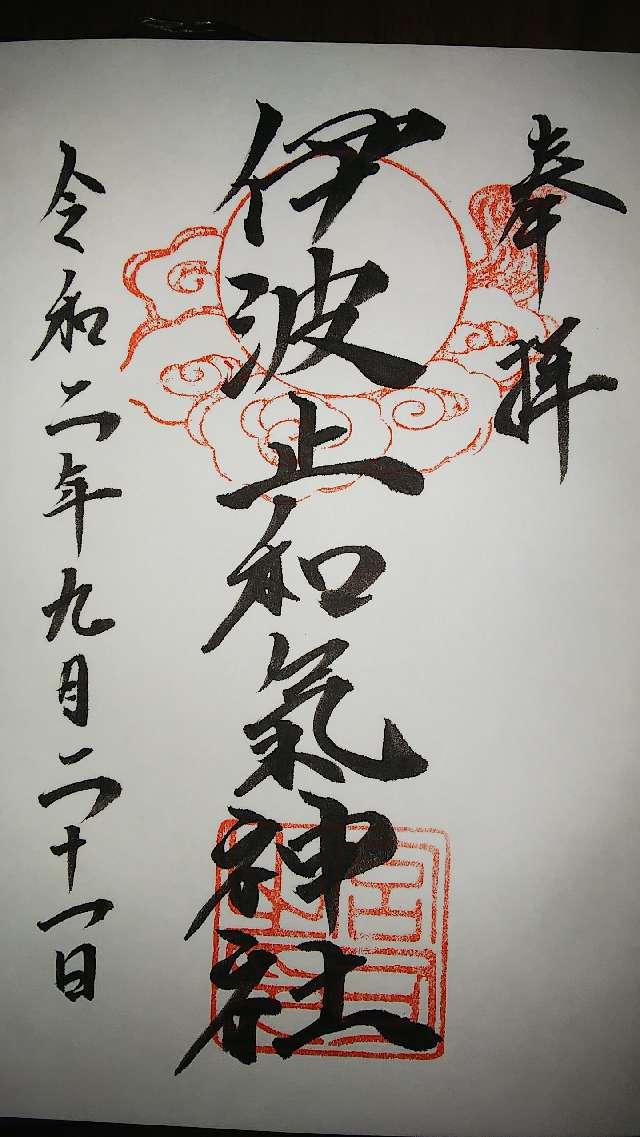 奉拝
伊波止和氣神社
令和二年九月二十一日